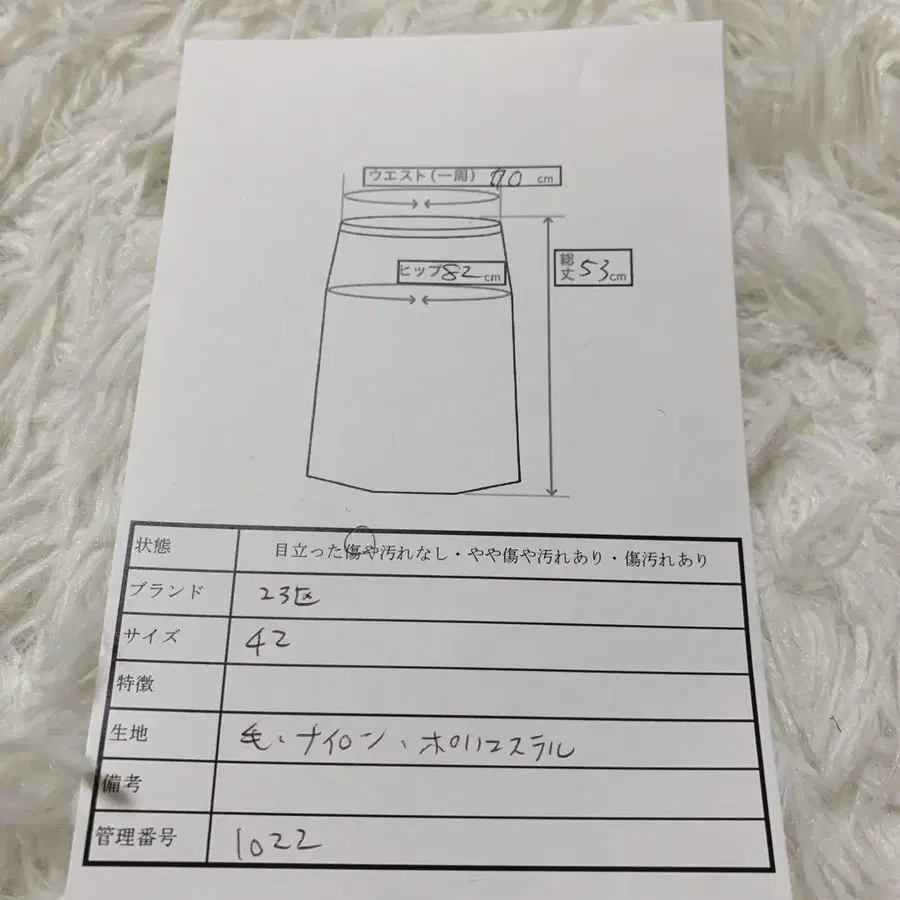 ウエスト(一周) 70 cm
ヒップ 82 cm
総丈 53 cm
状態 目立った傷や汚れなし・やや傷や汚れあり・傷汚れあり
ブランド 23区
サイズ 42
特徴
生地 毛、ナイロン、ポリエステル
備考
管理番号 1022